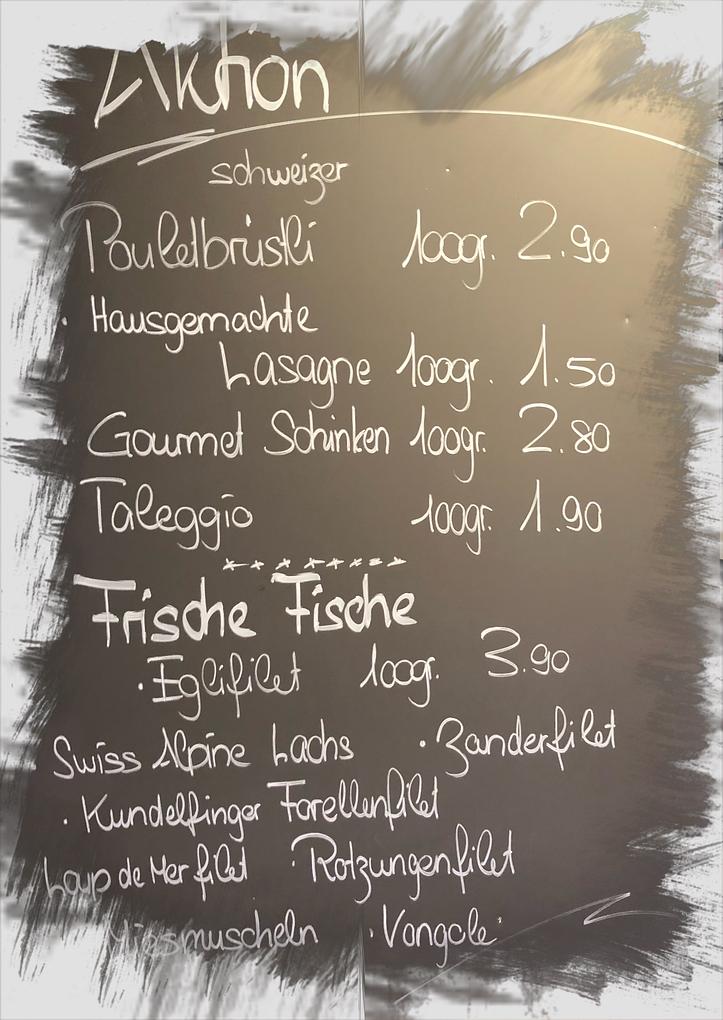 Aktion
schweizer
Pouletbrüstli 100gr. 2.90
· Hausgemachte
Lasagne 100gr. 1.50
Gourmet Schinken 100gr. 2.80
Taleggio 100gr. 1.90
Frische Fische
· Eglifilet 100gr. 3.90
Swiss Alpine Lachs · Zanderfilet
· Kundelfinger Forellenfilet
Loup de Mer filet · Rotzungenfilet
Miesmuscheln · Vongole